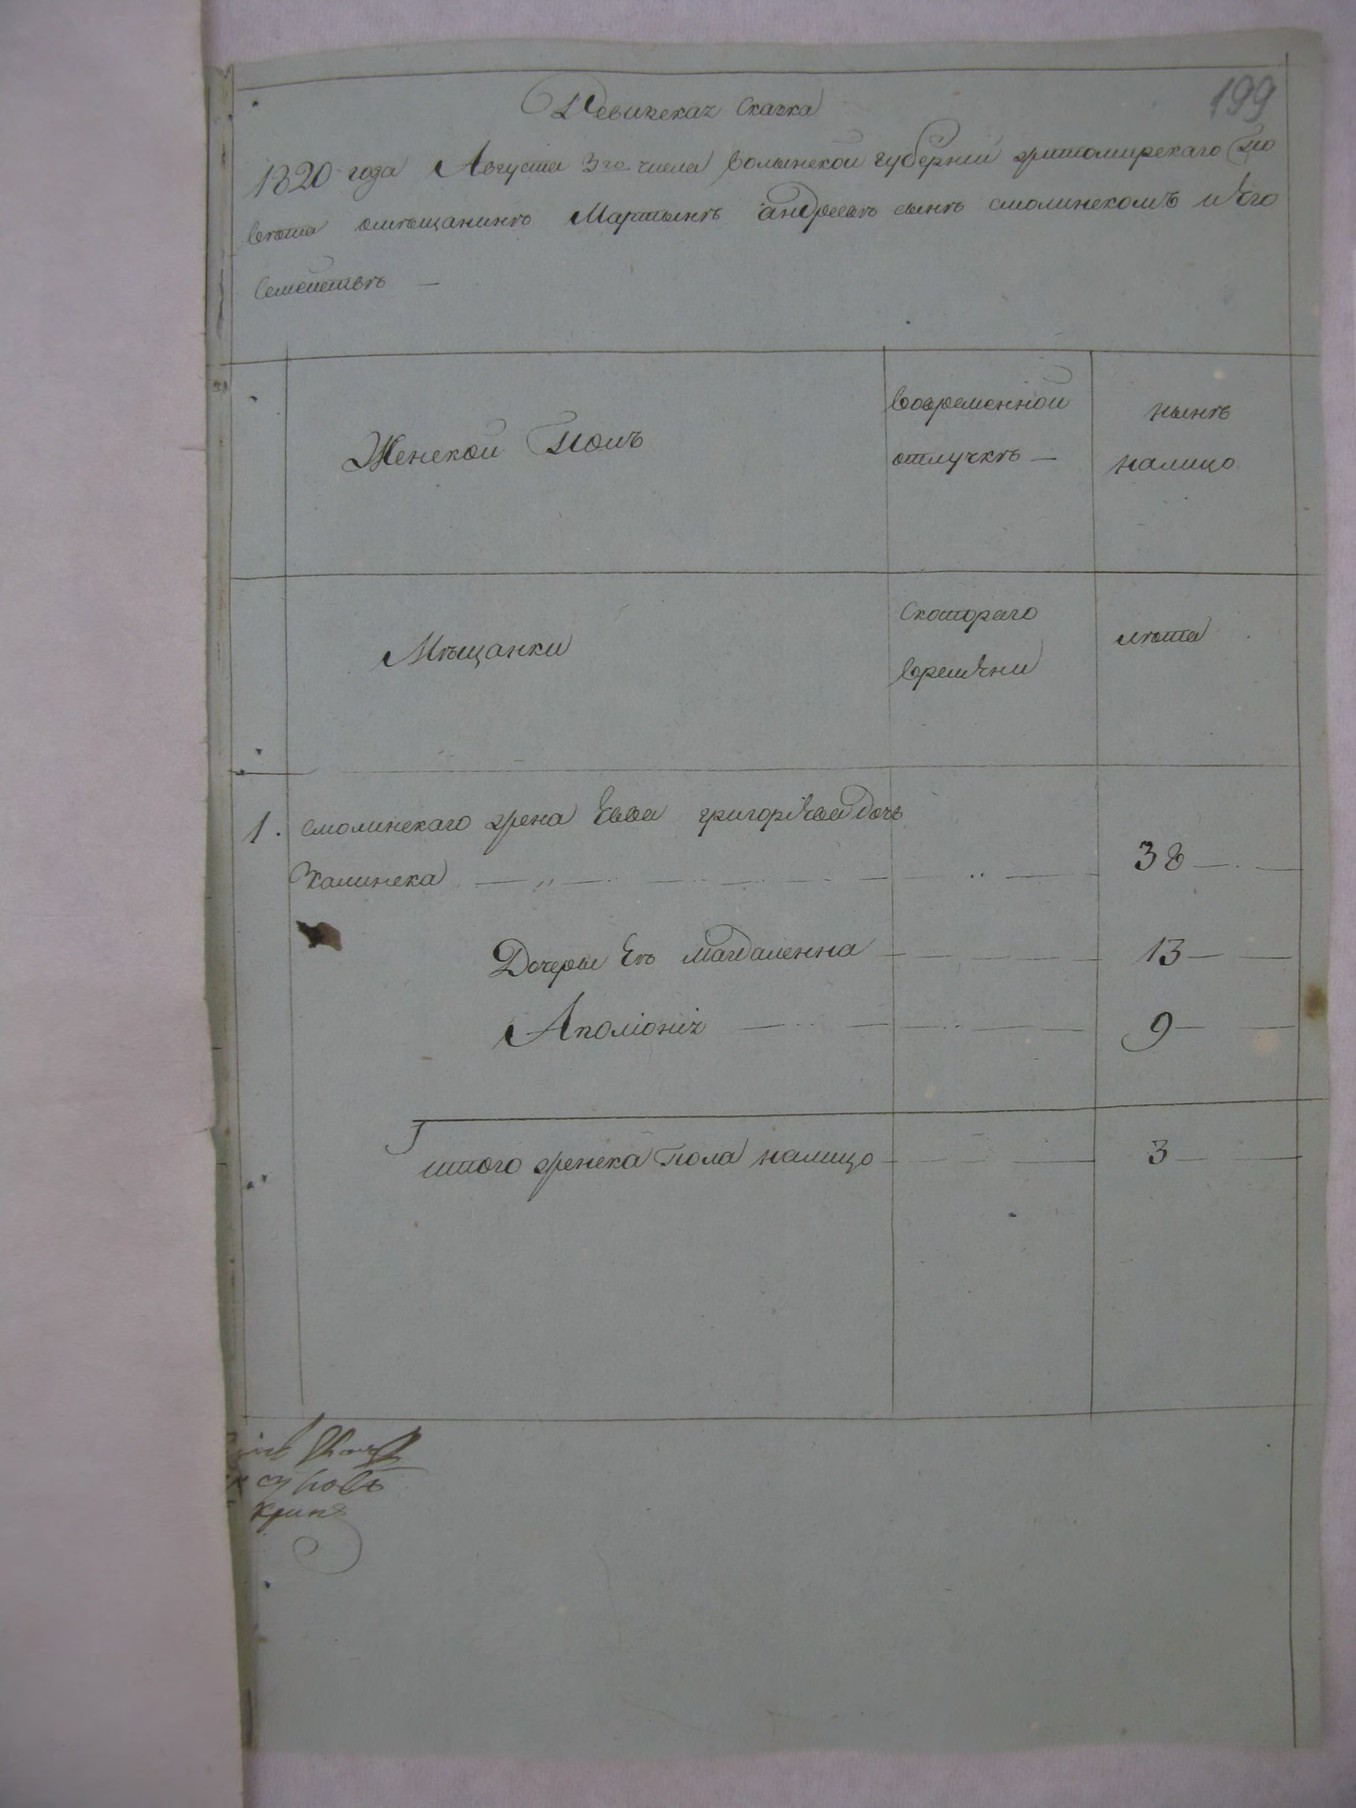 199
Ревизская Сказка
1820 года Августа 3го числа Волынской губернии житомирского По
вета омещанинѣ Мартынѣ андреевѣ сынѣ смолинскомъ и Его
Семействѣ —
Женской Полъ
вовременной
отлучкѣ —
нынѣ
налицо
Мѣщанки
Скотораго
времѣни
лѣта
1. смолинскаго жена Ева григорiева дочь
Калинска 38
Дочери Его Магдаленна 13
Аполiонiя 9
итого женска Пола налицо 3